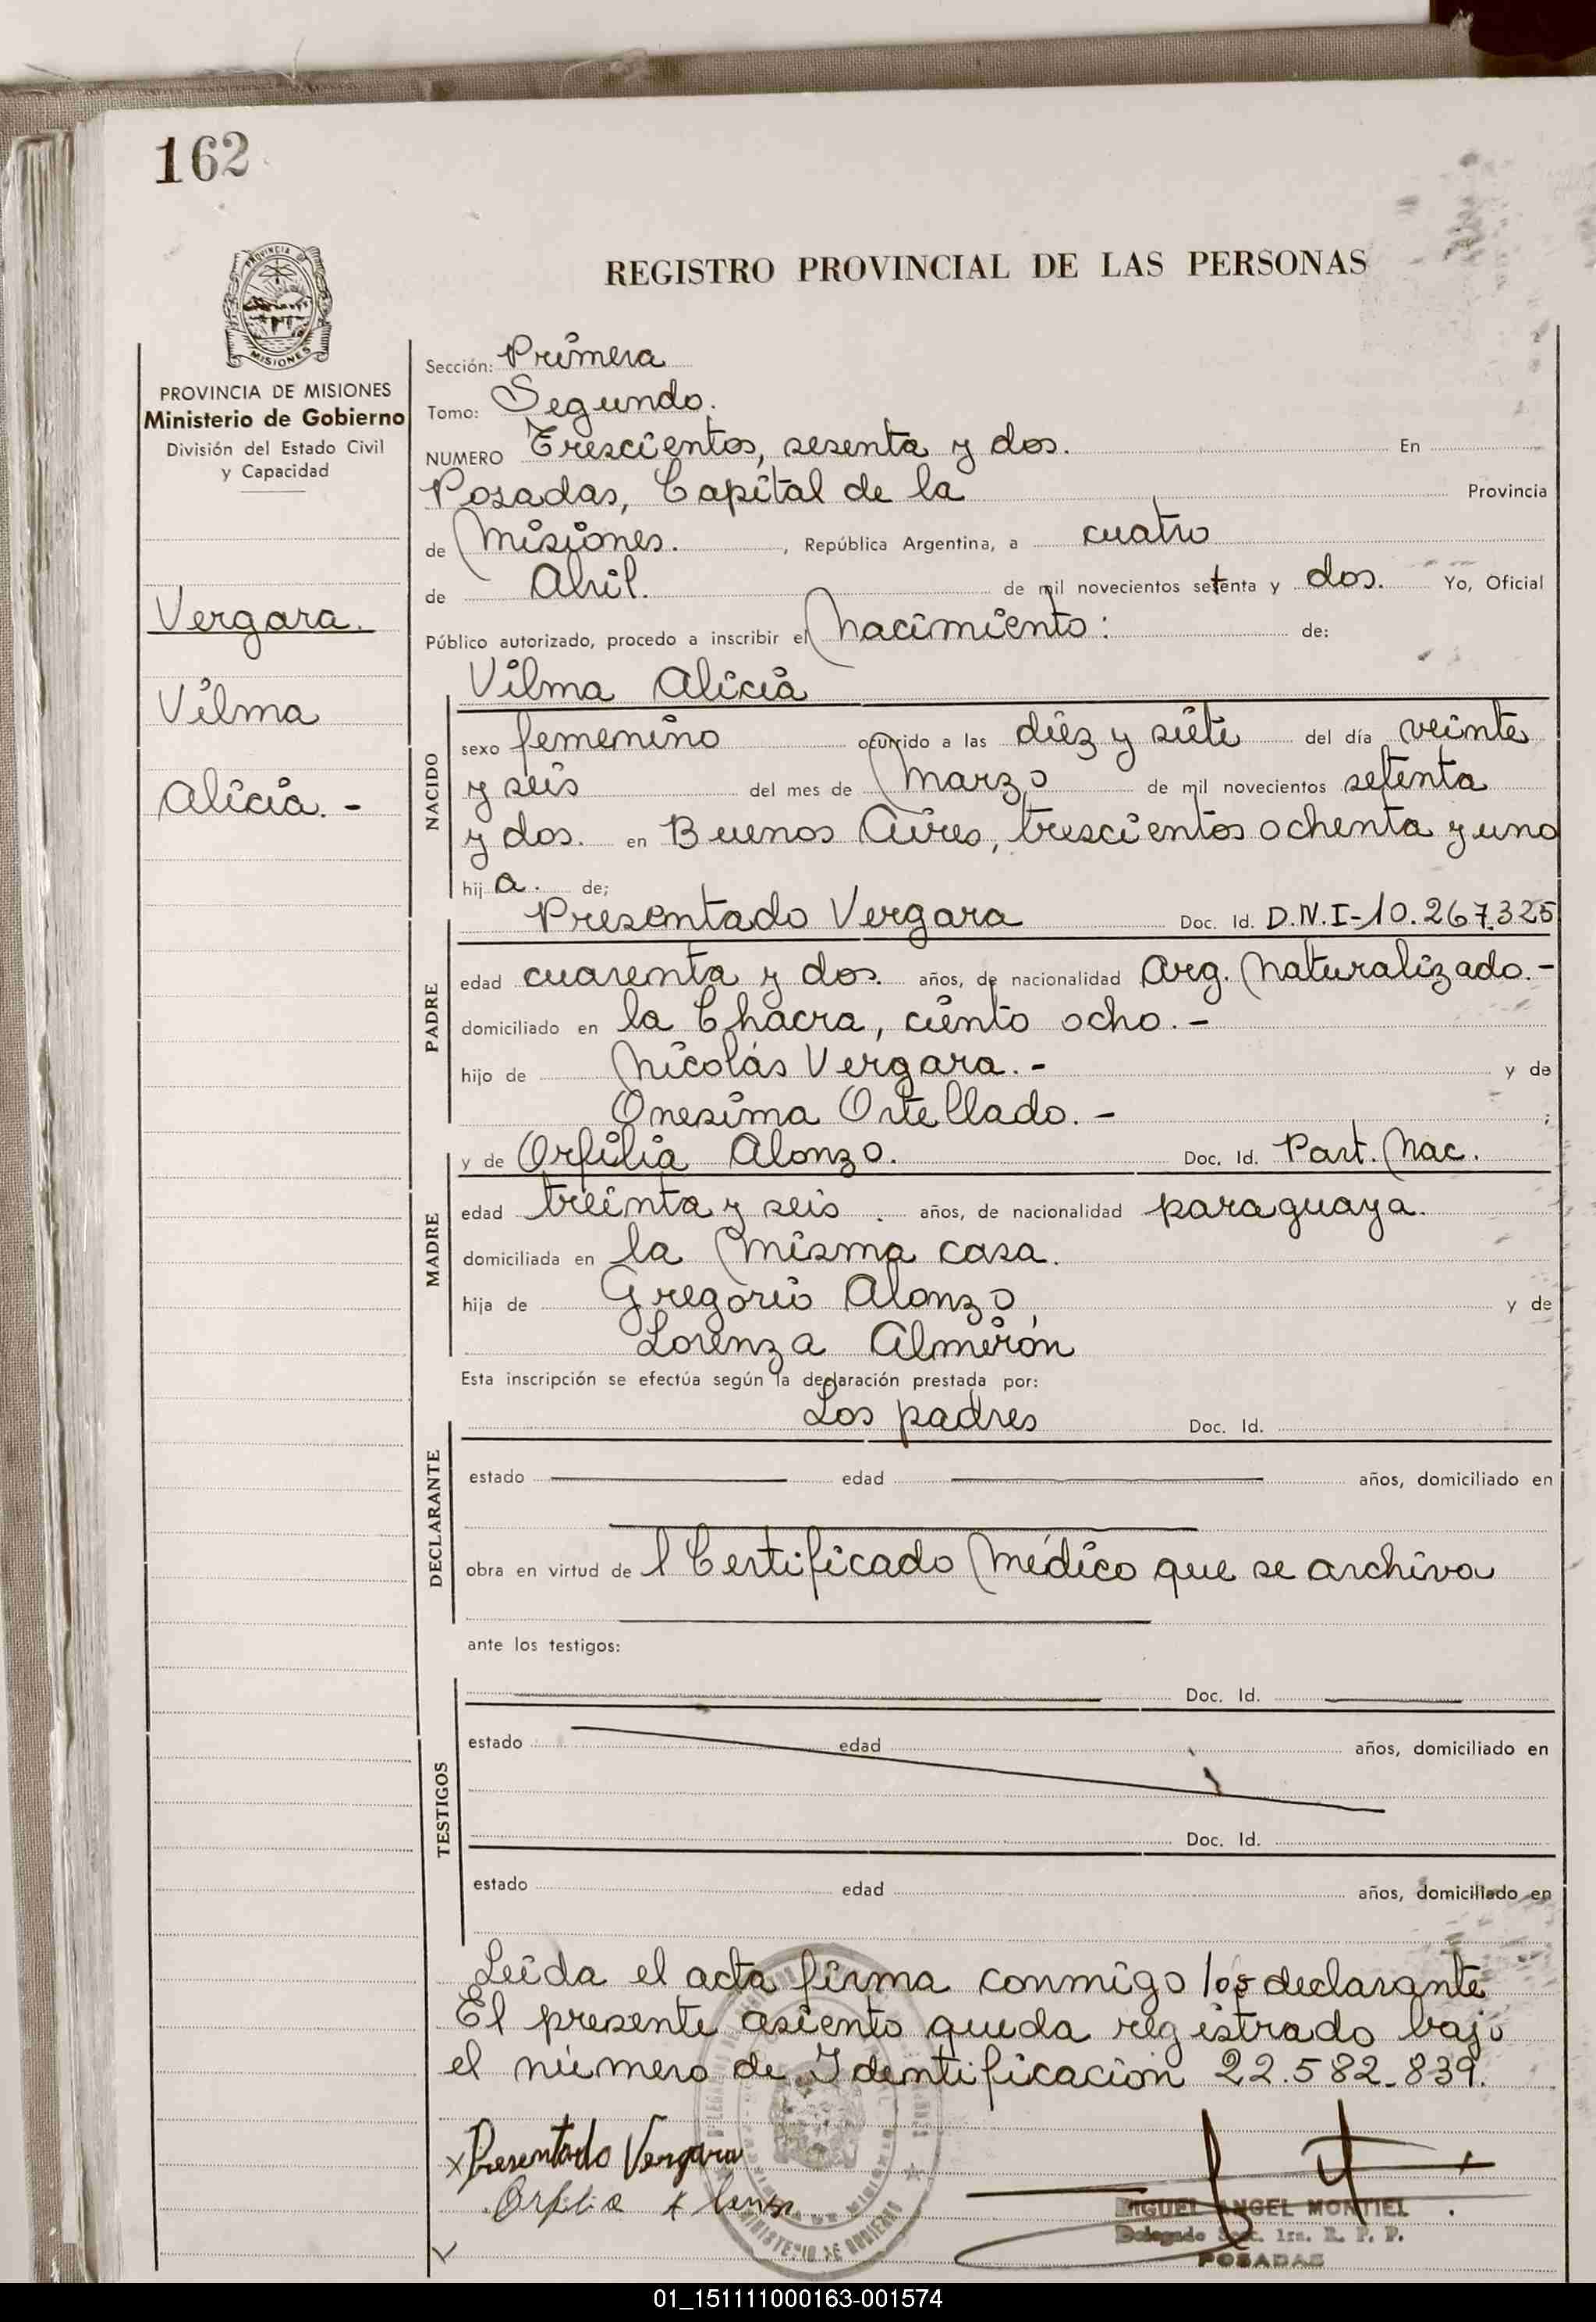 162
REGISTRO PROVINCIAL DE LAS PERSONAS
PROVINCIA DE
MISIONES
PROVINCIA DE MISIONES
Ministerio de Gobierno
División del Estado Civil
y Capacidad
Vergara.
Vilma
Alicia. -
Sección: Primera
Tomo: Segundo.
NUMERO Trescientos, sesenta y dos. En
Posadas, Capital de la Provincia
de Misiones. , República Argentina, a cuatro
de Abril. de mil novecientos setenta y dos. Yo, Oficial
Público autorizado, procedo a inscribir el Nacimiento: de:
Vilma Alicia
NACIDO
sexo femenino ocurrido a las diez y siete del día veinte
y seis del mes de Marzo de mil novecientos setenta
y dos. en Buenos Aires, trescientos ochenta y uno
hij a. de;
Presentado Vergara Doc. Id. D.N.I-10.267.325
PADRE
edad cuarenta y dos. años, de nacionalidad Arg. Naturalizado.-
domiciliado en la Chacra, ciento ocho.-
hijo de Nicolás Vergara.- y de
Onesima Ortellado.- ;
y de Orfilia Alonzo. Doc. Id. Part. Nac.
MADRE
edad treinta y seis . años, de nacionalidad paraguaya.
domiciliada en la misma casa.
hija de Gregorio Alonzo y de
Lorenza Almirón
Esta inscripción se efectúa según la declaración prestada por:
Los padres Doc. Id.
DECLARANTE
estado edad años, domiciliado en
obra en virtud de l Certificado Médico que se archiva
ante los testigos:
Doc. Id.
TESTIGOS
estado edad años, domiciliado en
Doc. Id.
estado edad años, domiciliado en
Leida el acta firma conmigo los declarante
El presente asiento queda registrado bajo
el número de Identificacion 22.582.839.
x Presentado Vergara
Orfilia Alonzo
MIGUEL ANGEL MONTIEL
Delegado Secc. 1ra. R. P. P.
POSADAS
MINISTERIO DE GOBIERNO
01_151111000163-001574